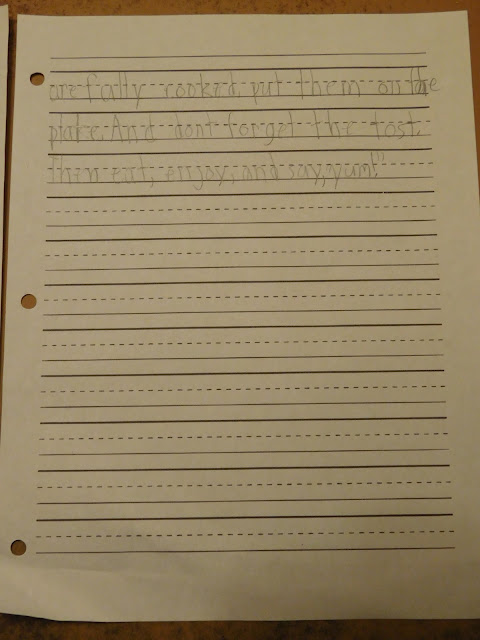 are fully cooked, put them on the
plate. And dont forget the tost.
Then eat, enjoy, and say, yum!"